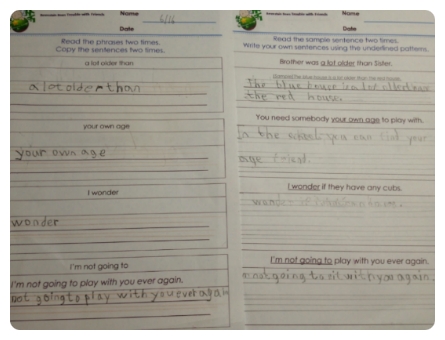 Name 6/16
Date
Read the phrases two times.
Copy the sentences two times.
a lot older than
a lot older than
your own age
your own age
I wonder
wonder
I'm not going to
I'm not going to play with you ever again.
not going to play with you ever again
Name
Date
Read the sample sentence two times.
Write your own sentences using the underlined patterns.
Brother was a lot older than Sister.
The blue house is a lot older than
the red house.
You need somebody your own age to play with.
you can your
age
I wonder if they have any cubs.
wonder if
I'm not going to play with you ever again.
not going to sit with you again.